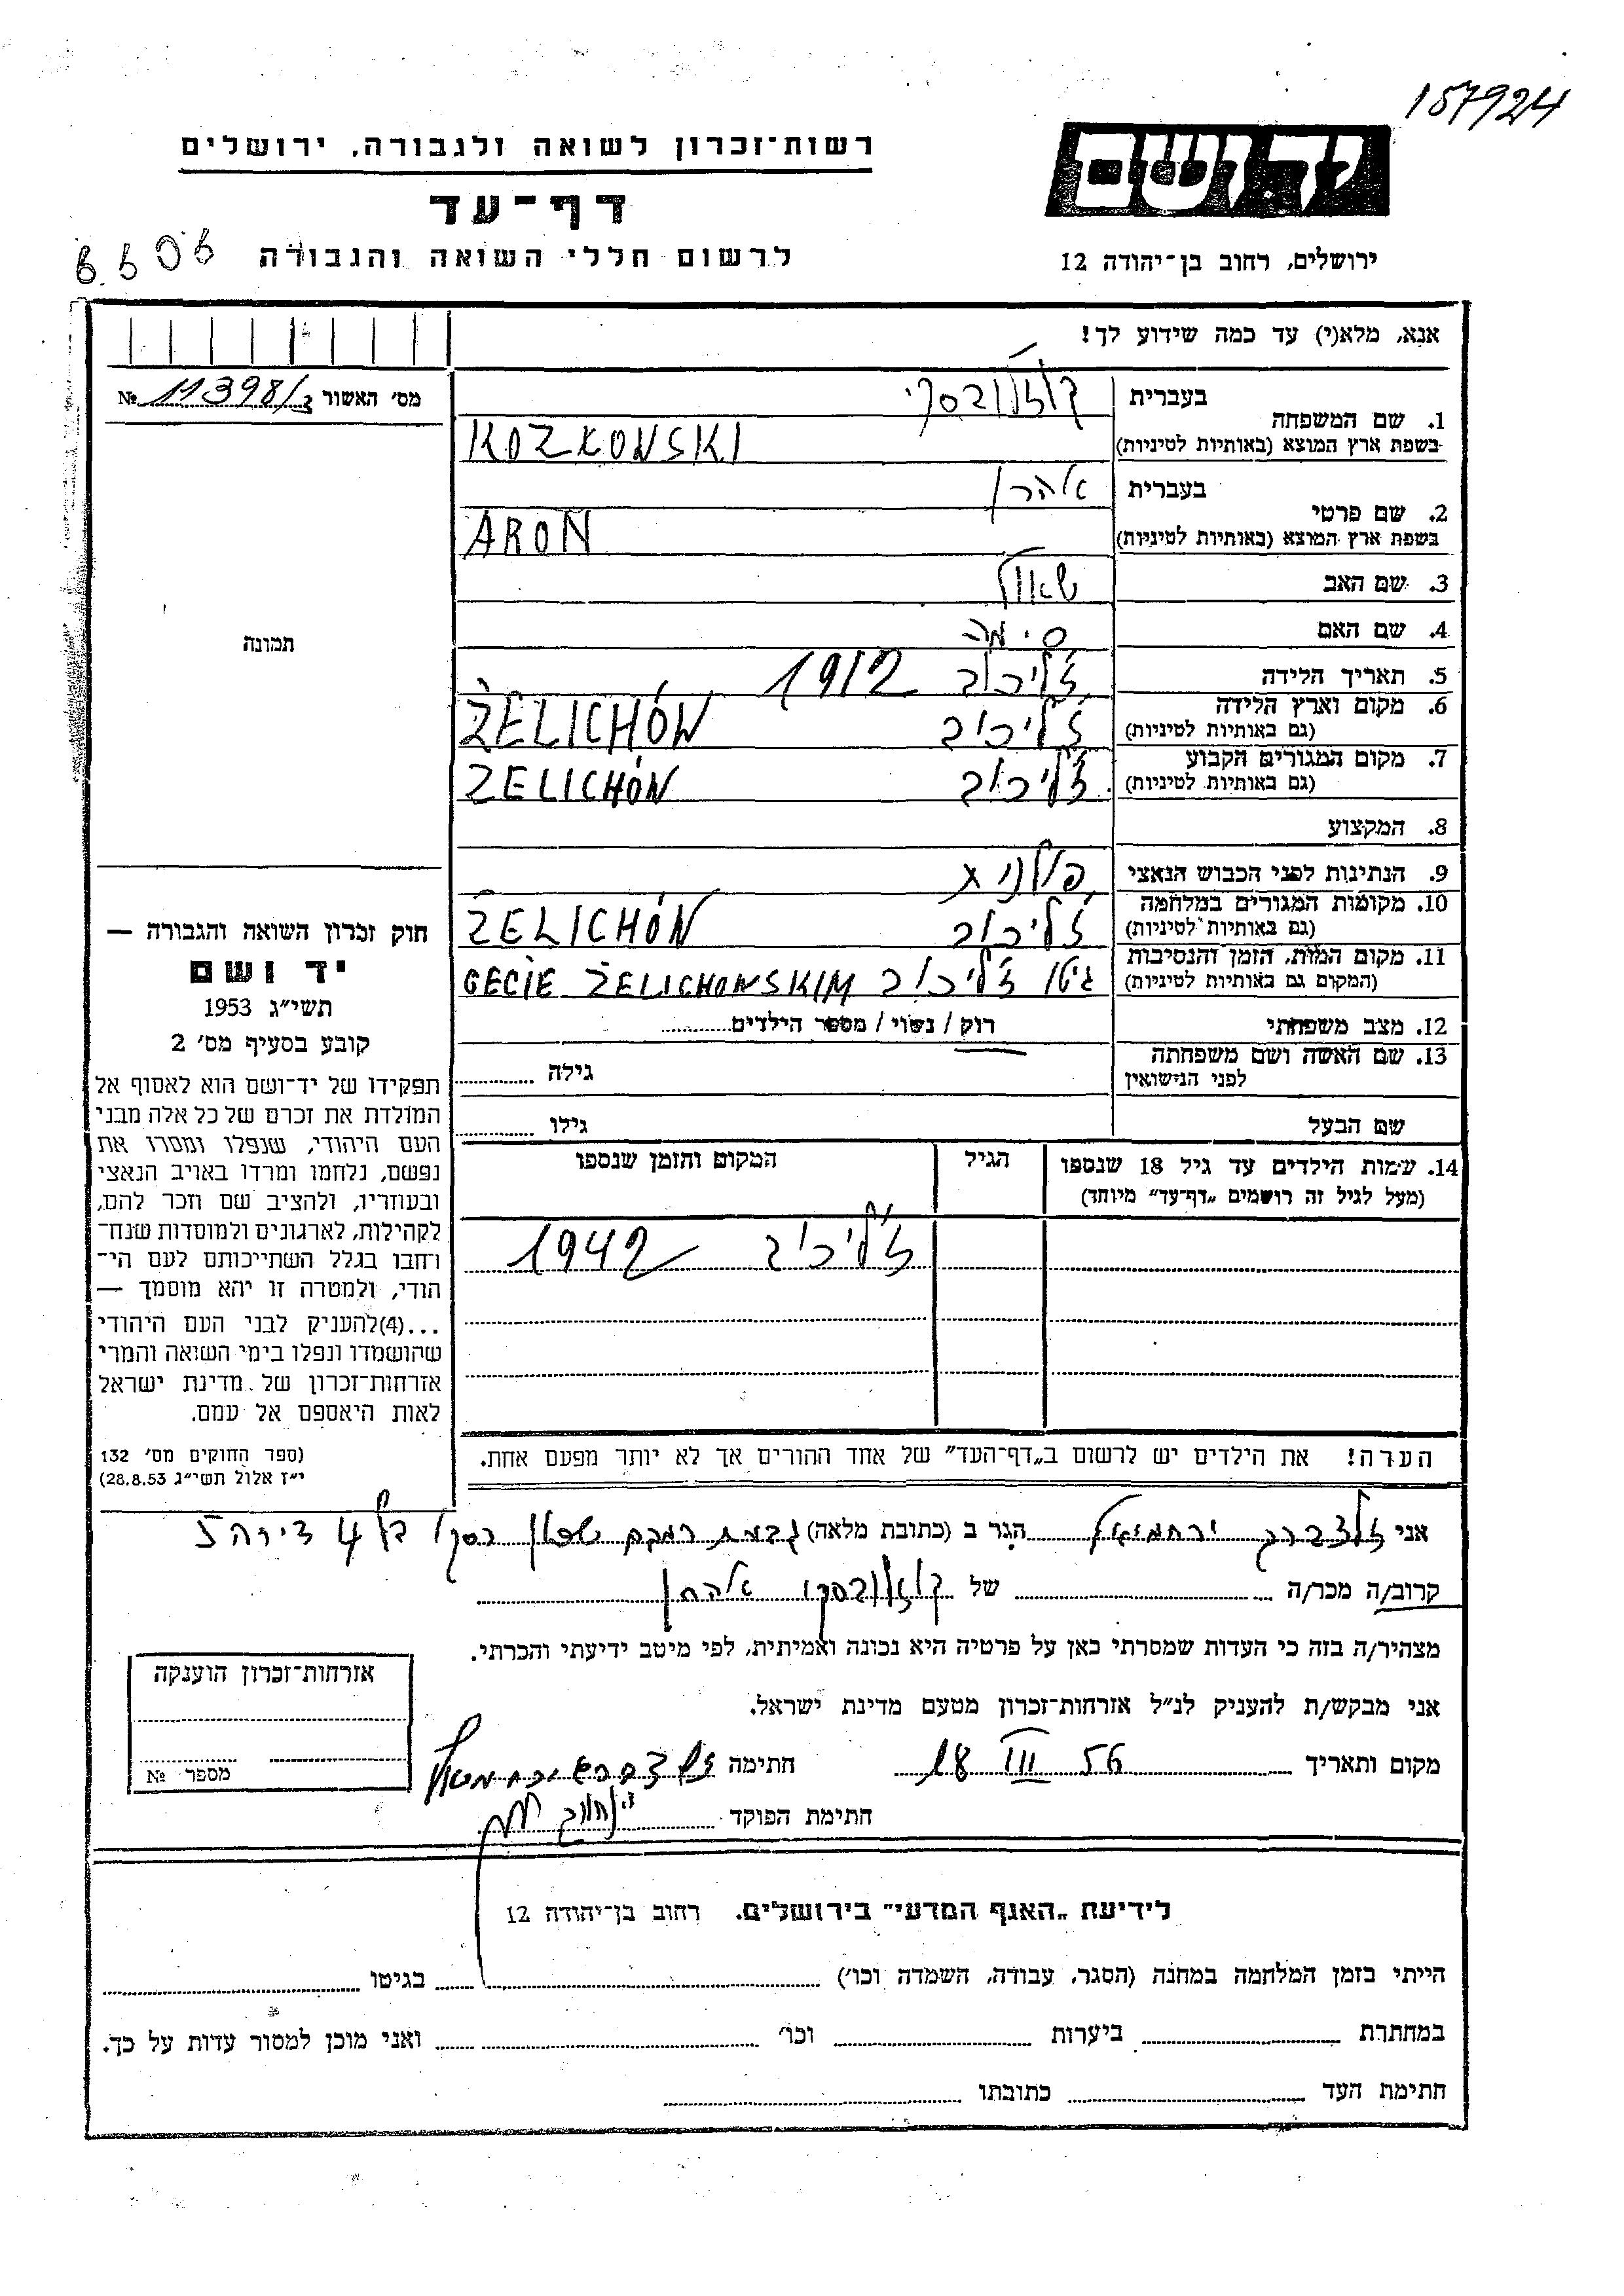 157924
רשות-זכרון לשואה ולגבורה, ירושלים
יד ושם
דף-עד
לרשום חללי השואה והגבורה
ירושלים, רחוב בן-יהודה 12
אנא, מלא(י) עד כמה שידוע לך!
מס' האשור 11398/3 №
1. שם המשפחה
בעברית
בשפת ארץ המוצא (באותיות לטיניות) KOZKOWSKI
2. שם פרטי
בעברית אהרן
בשפת ארץ המוצא (באותיות לטיניות) ARON
3. שם האב שאול
4. שם האם סימה
תמונה
5. תאריך הלידה ז'ליכוב 1912
6. מקום וארץ הלידה (גם באותיות לטיניות) ז'ליכוב ŻELICHÓW
7. מקום המגורים הקבוע (גם באותיות לטיניות) ז'ליכוב ŻELICHÓW
8. המקצוע
9. הנתינות לפני הכבוש הנאצי פולנית
10. מקומות המגורים במלחמה (גם באותיות לטיניות) ז'ליכוב ŻELICHÓW
11. מקום המות, הזמן והנסיבות (המקום גם באותיות לטיניות) גיטו ז'ליכוב GECIE ŻELICHOWSKIM
12. מצב משפחתי רוק / נשוי / מספר הילדים
13. שם האשה ושם משפחתה לפני הנישואין גילה
שם הבעל גילו
14. שמות הילדים עד גיל 18 שנספו
(מעל לגיל זה רושמים „דף-עד" מיוחד)
הגיל
המקום והזמן שנספו
ז'ליכוב 1942
הערה! את הילדים יש לרשום ב„דף-העד" של אחד ההורים אך לא יותר מפעם אחת.
חוק זכרון השואה והגבורה —
יד ושם
תשי״ג 1953
קובע בסעיף מס' 2
תפקידו של יד-ושם הוא לאסוף אל
המולדת את זכרם של כל אלה מבני
העם היהודי, שנפלו ומסרו את
נפשם, נלחמו ומרדו באויב הנאצי
ובעוזריו, ולהציב שם וזכר להם,
לקהילות, לארגונים ולמוסדות שנח-
רחבו בגלל השתייכותם לעם הי-
הודי, ולמטרה זו יהא מוסמך —
...(4)להעניק לבני העם היהודי
שהושמדו ונפלו בימי השואה והמרי
אזרחות-זכרון של מדינת ישראל
לאות היאספם אל עמם.
(ספר החוקים מס' 132
י״ז אלול תשי״ג 28.8.53)
אני זלצברג ירחמיאל הגר ב (כתובת מלאה) גבעת רמבם שכון בלוק 4 דירה 5
קרוב/ה מכר/ה של אהרן
מצהיר/ה בזה כי העדות שמסרתי כאן על פרטיה היא נכונה ואמיתית, לפי מיטב ידיעתי והכרתי.
אני מבקש/ת להעניק לנ״ל אזרחות-זכרון מטעם מדינת ישראל.
מקום ותאריך 18 III 56 חתימה זלצברג ירחמיאל
חתימת הפוקד
אזרחות-זכרון הוענקה
מספר №
לידיעת „האגף המדעי" בירושלים. רחוב בן-יהודה 12
הייתי בזמן המלחמה במחנה (הסגר, עבודה, השמדה וכו') בגיטו
במחתרת ביערות וכו' ואני מוכן למסור עדות על כך.
חתימת העד כתובתו